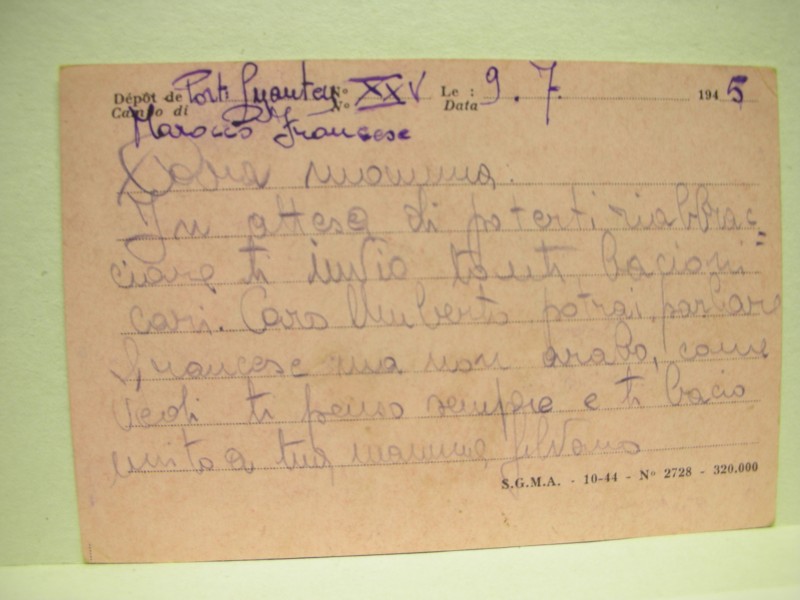 Dépôt de Port Lyautey N° XXV Le : 9.7. 1945
Campo di N° Data
Marocco Francese
Cara mamma.
In attesa di poterti riabbrac=
ciare ti invio tanti bacioni
cari. Caro Umberto potrai parlare
francese ma non arabo, come
vedi ti penso sempre e ti bacio
unito a tua mamma Silvano
S.G.M.A. - 10-44 - N° 2728 - 320.000